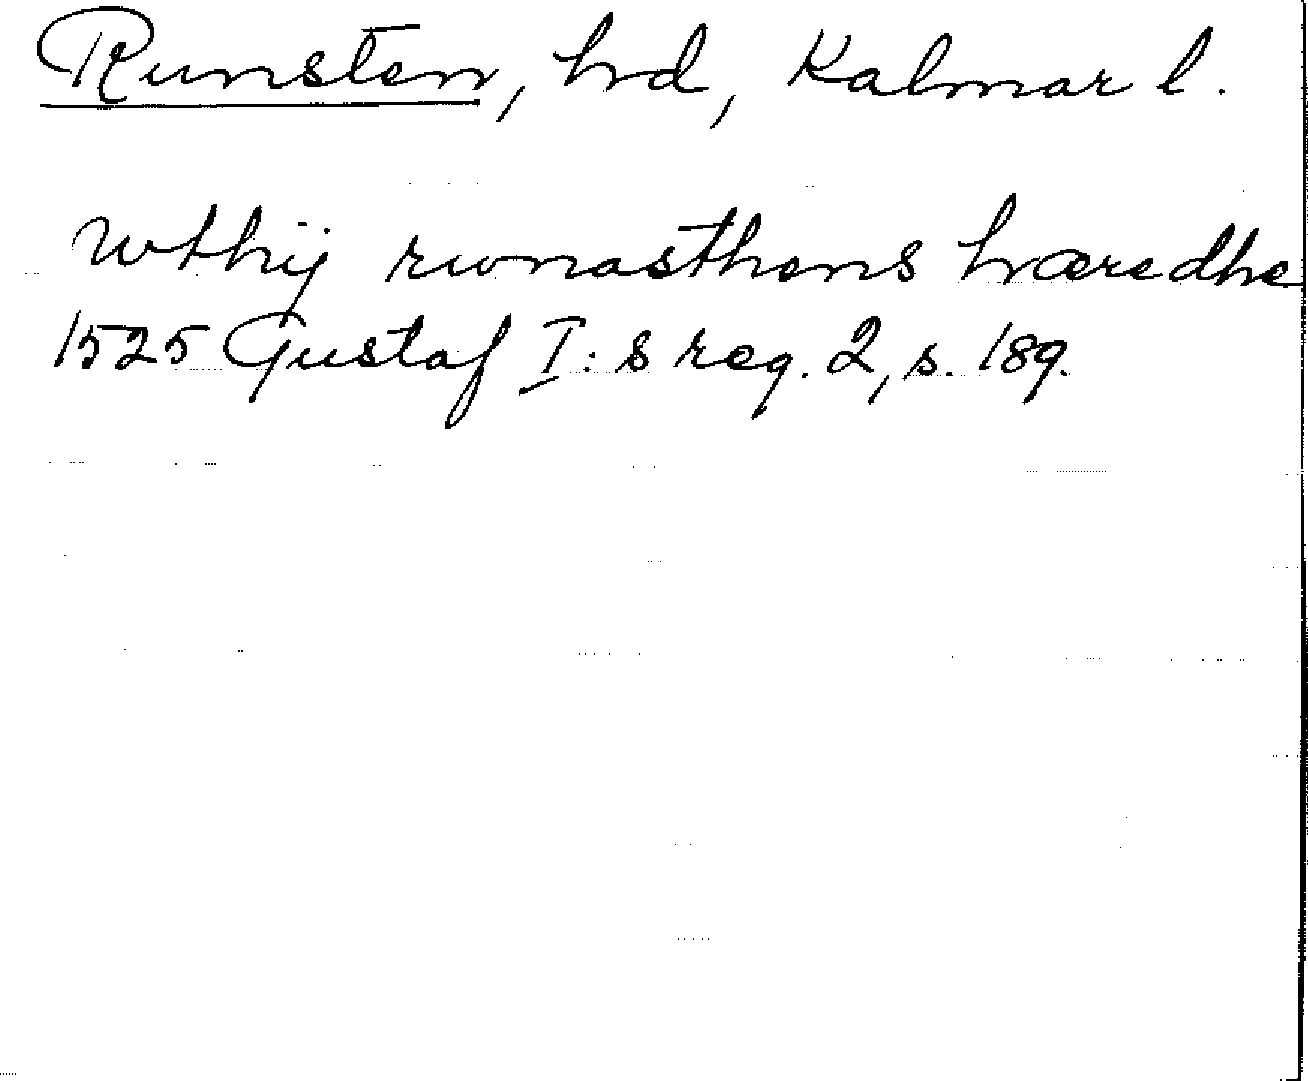 Runsten, hd, Kalmar l.
wthij rwnasthens hæredhe
1525 Gustaf I:s reg. 2, s. 189.